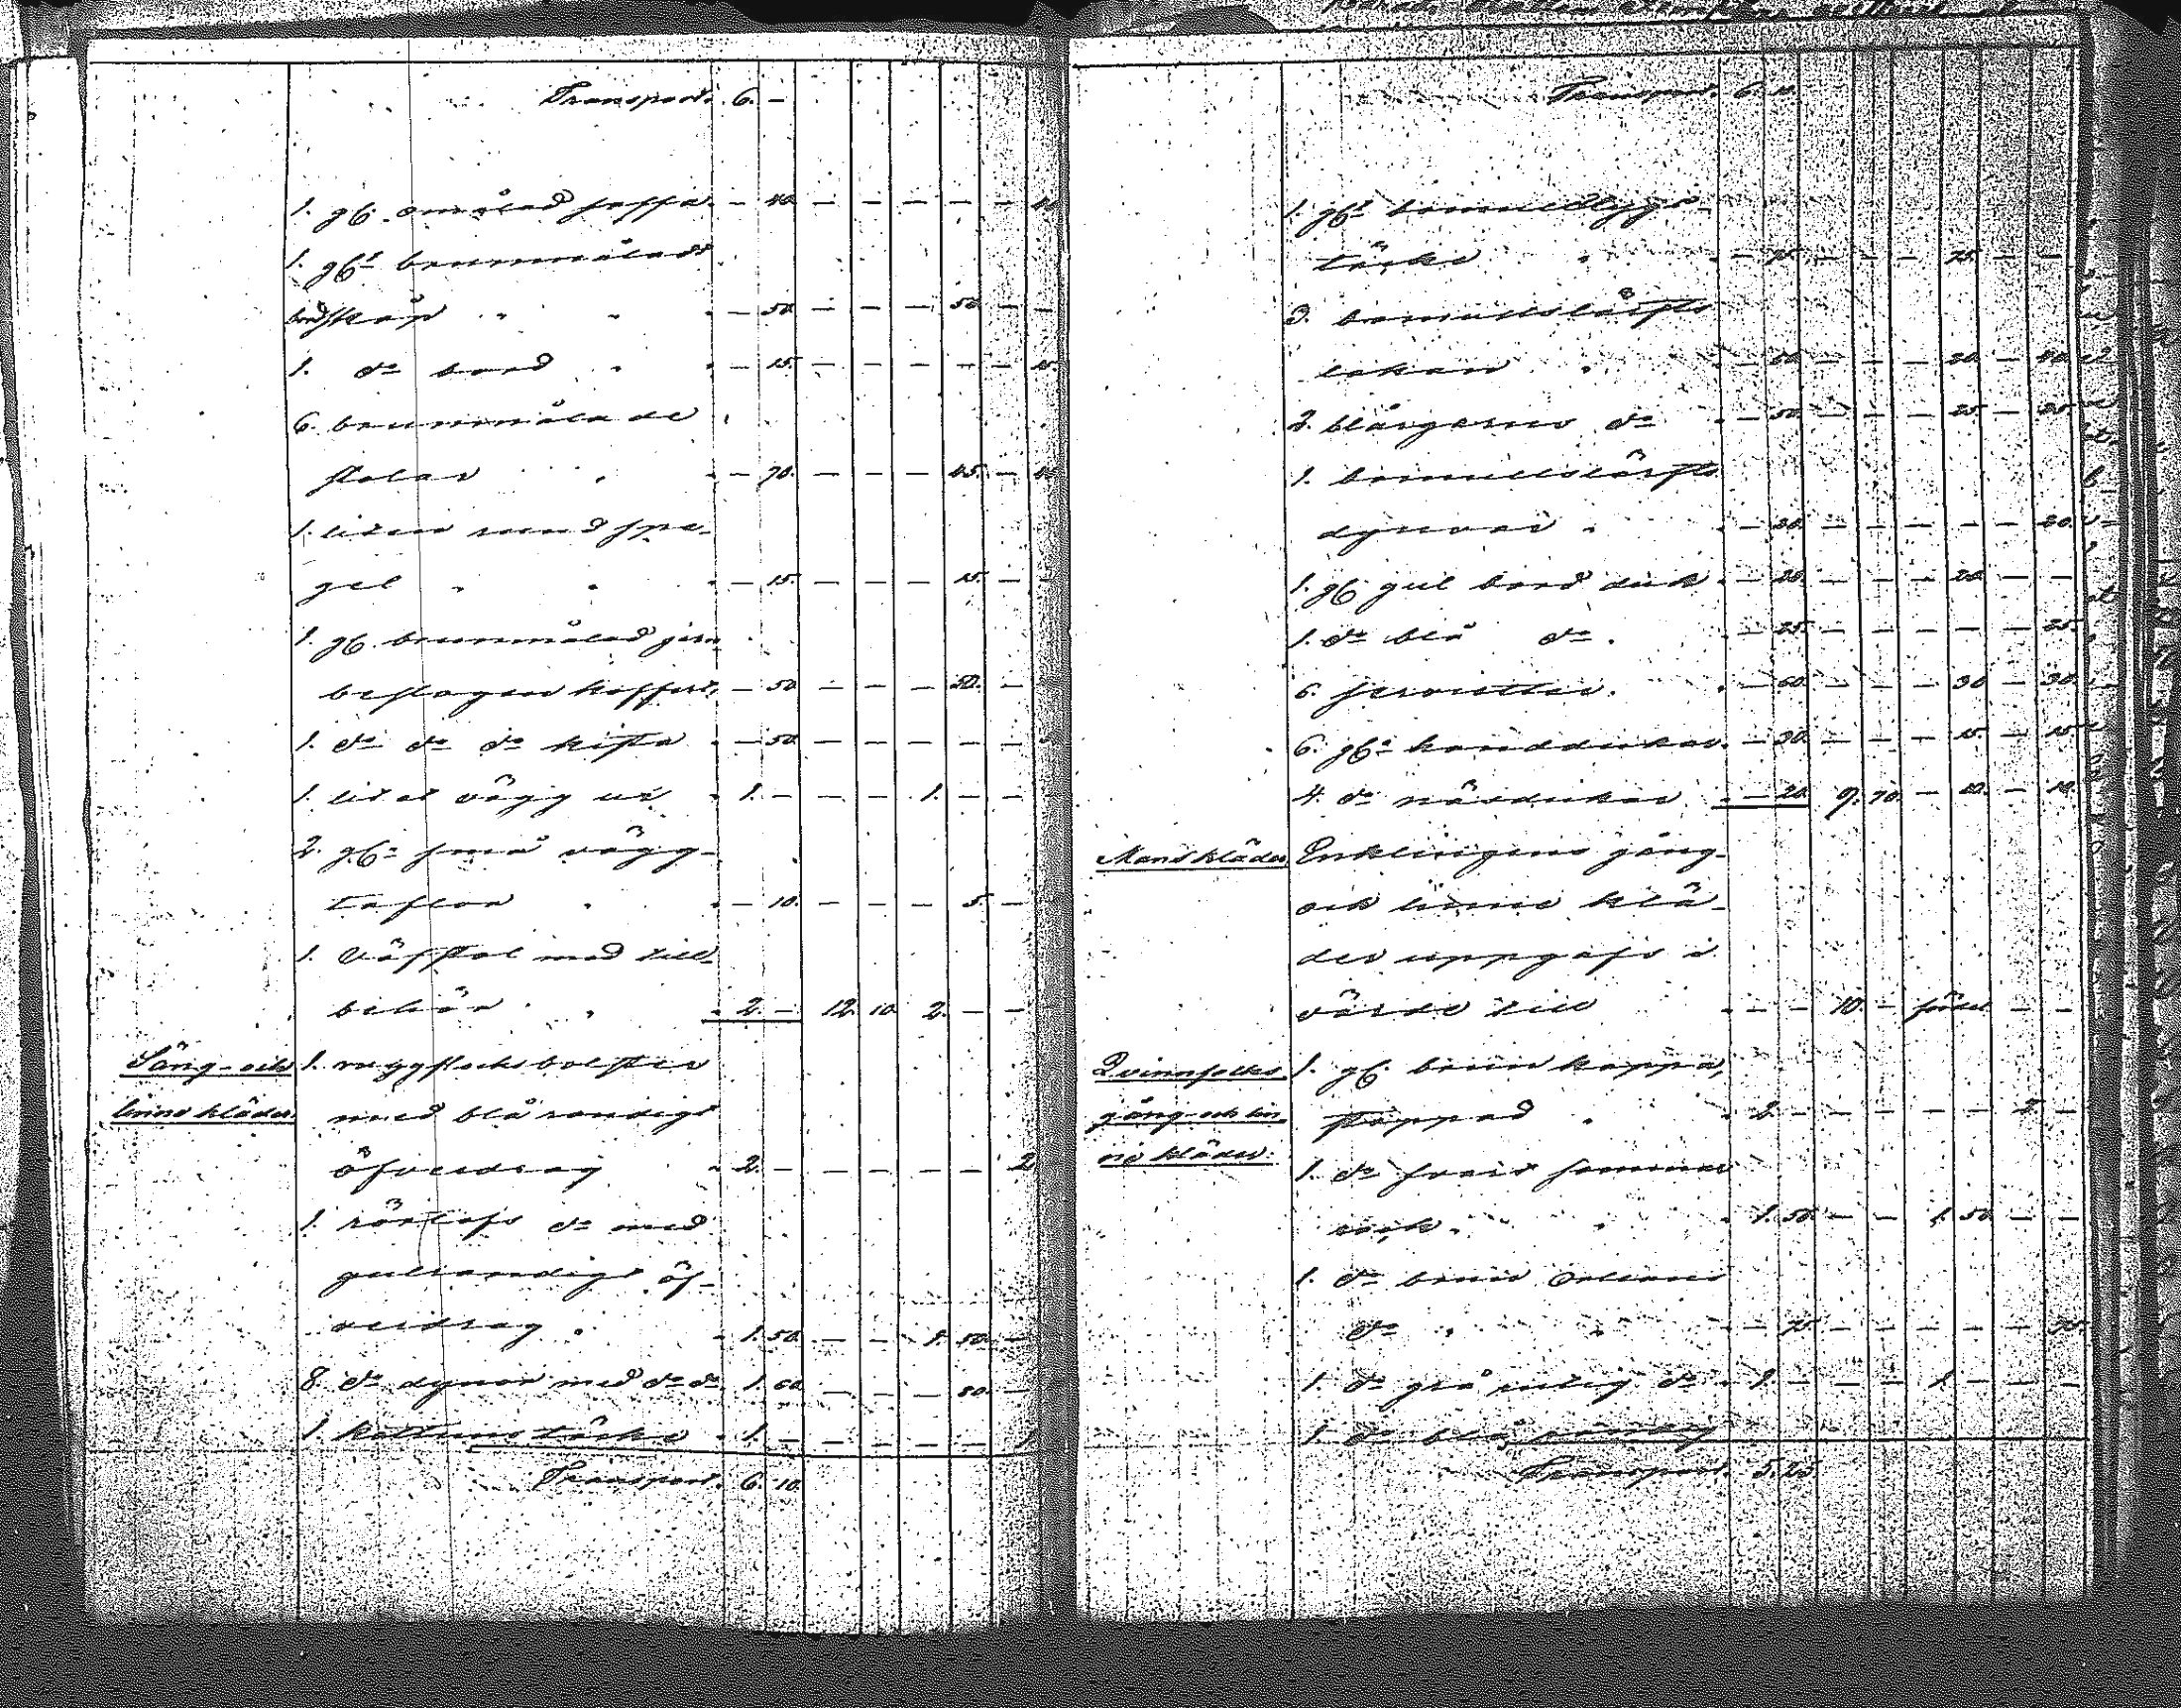 Transport. 6. –
1. gl. omålad soffa – 40. – – – – – 40
1. glt brunmåladt
bordskåp – 50. – – – 50 – –
1. do bord – 15. – – – – – 15.
6. brunmålade
stolar – 70. – – – 45. –
1. liten rund spe-
gel – 15. – – – 15. – –
1. gl. brunmålad jern-
beslagen koffert, – 50 – – – 50. –
1. do do do kista – 50 – – – – –
1. litet vägg ur 1. – – – 1. – –
2. gla små vägg-
taflor – 10. – – – 5. –
1. Väfstol med till-
behör 2. – 12. 10 2. – –
Säng- och 1. ruggflocksbolster
linne kläder. med blå randigt
öfverdrag 2. – – – – – 2
1. rörlafs do med
gulrandigt öf-
verdrag 1. 50. – – 1. 50. –
8. do dynor med do do 1. 60. – – – 80. –
1. kattuns täcke 1. – – – – – 1
Transport. 6. 10.
Transport. 6. 10.
1. glt bomullstygs-
täcke – 75. – – – 75. – –
3. bomullslärfts
lakan – – – –
2. blårgarns do – 50. – – – 25. – 25
1. bomullslärfts
dynvar – 20. – – – – – 20.
1. gl. gul bord duk – 20. – – – 20 – –
1. do blå do – 25. – – – – – 25.
6. servietter. – 60. – – – 30 – 30.
6. gla handdukar – 30. – – – 15. – 15
4. do näsdukar – 20. 9. 70. – 10. – 10.
Manskläder Enklingens gång-
och linne klä-
der uppgafs i
värde till – – 10. – – –
Qvinnfolks 1. gl. brun kappa,
gång- och lin- stoppad 2. – – – – – 2. –
ne kläder. 1. do svart sommar
rock 1. 50. – – 1. 50 – –
1. do brun Orleans
do – 75. – – – – – 75.
1. do grå rutig do 1. – – – 1. – – –
1. do blå randig
Transport. 5. 25